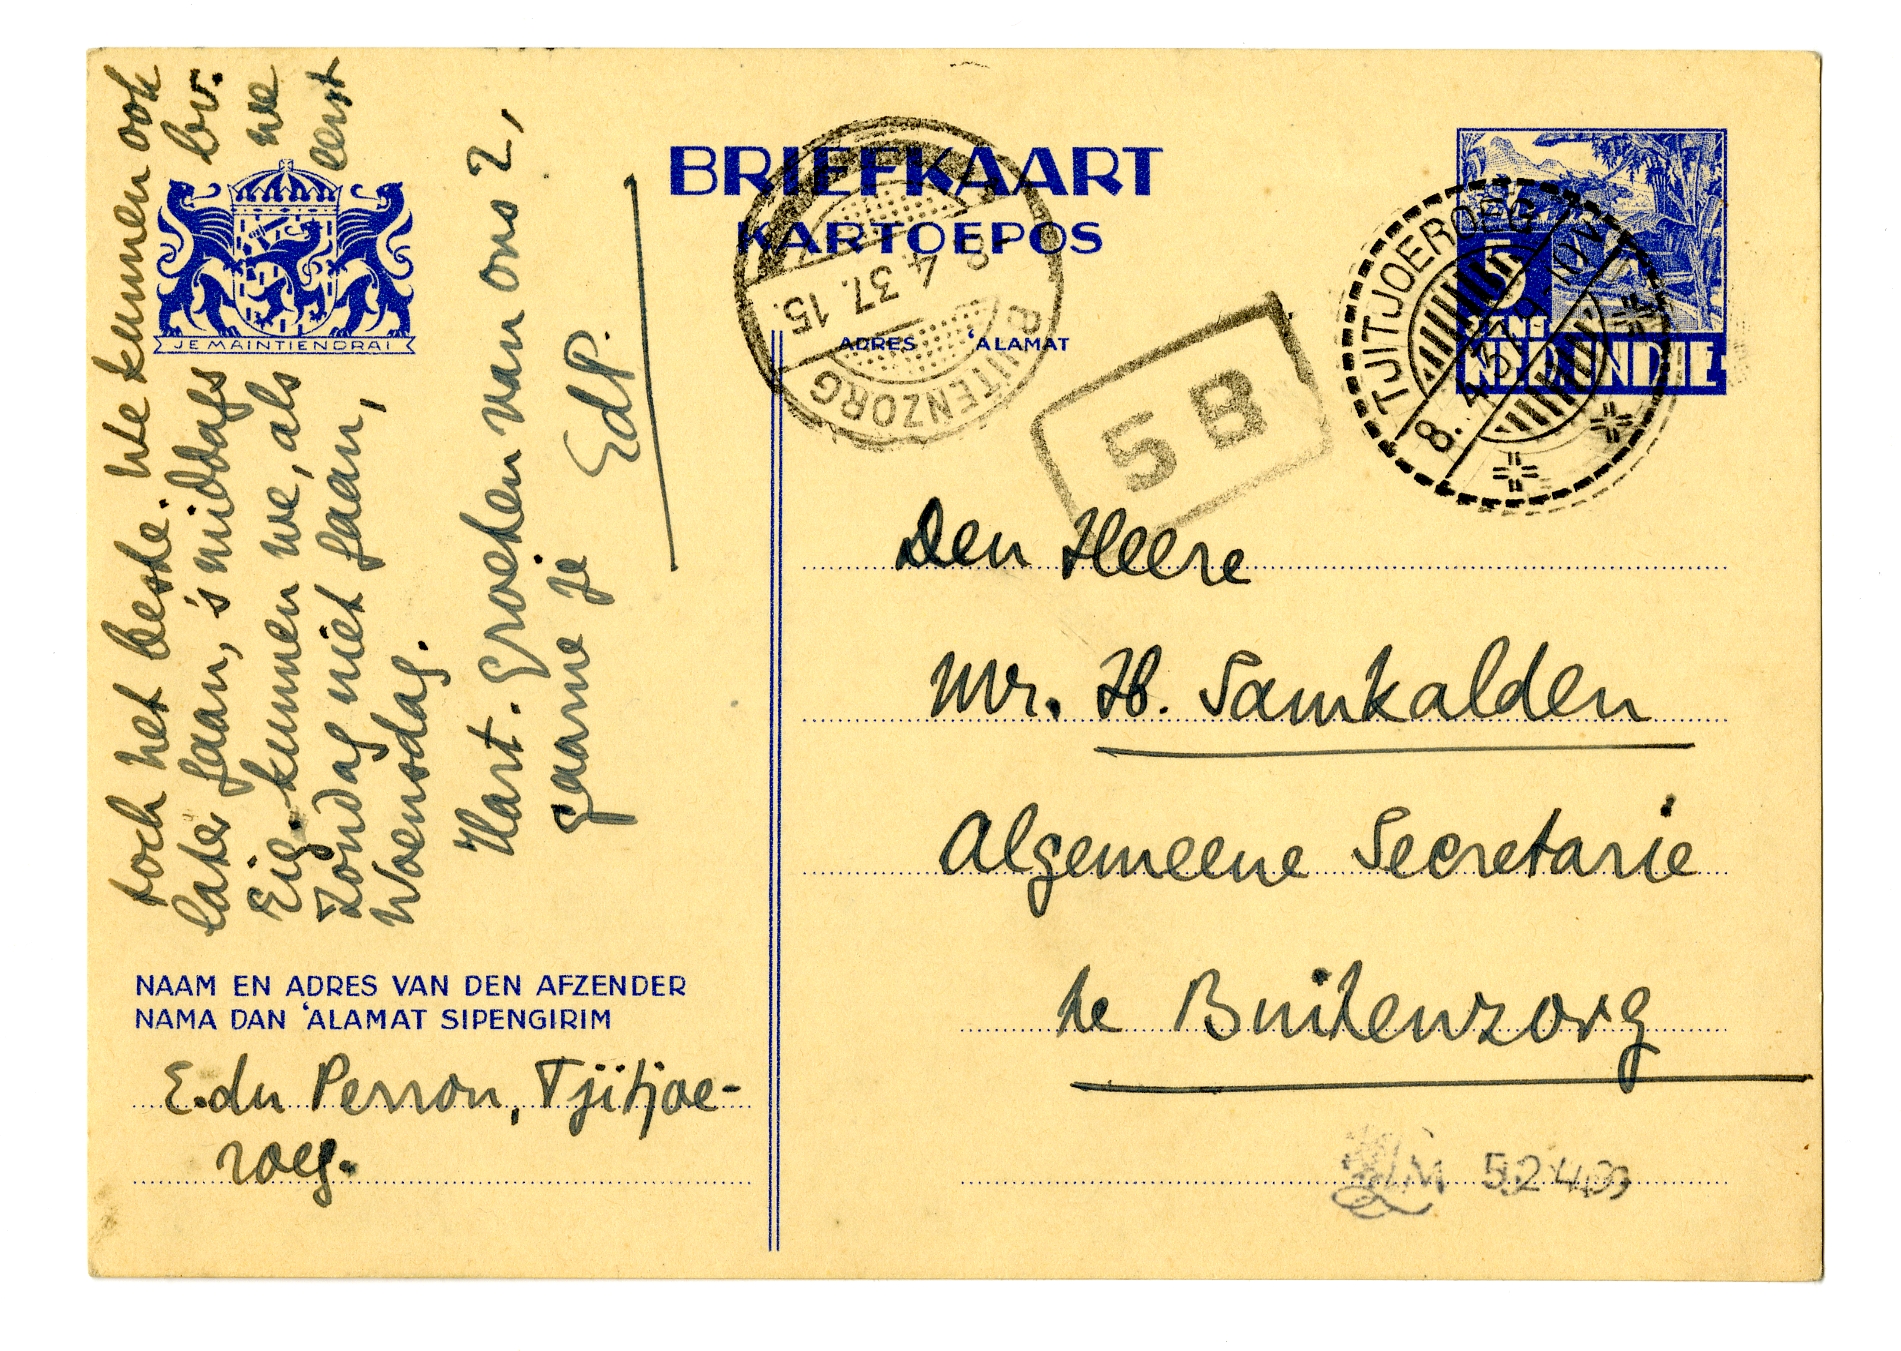 BRIEFKAART
KARTOEPOS
ADRES 'ALAMAT
JE MAINTIENDRAI
5
CENT
NED. INDIE
TJITJOEROEG
8. 4.37.
BUITENZORG
8. 4.37. 15.
5B
toch het beste. We kunnen ook
later gaan, 's middags bv.
Eig. kunnen we, als we
Zondag niet gaan, eerst
Woensdag.
Hart. groeten van ons 2,
gaarne je
EdP.
Den Heere
Mr. H. Samkalden
Algemeene Secretarie
te Buitenzorg
NAAM EN ADRES VAN DEN AFZENDER
NAMA DAN 'ALAMAT SIPENGIRIM
E. du Perron, Tjitjoe-
roeg.
LM